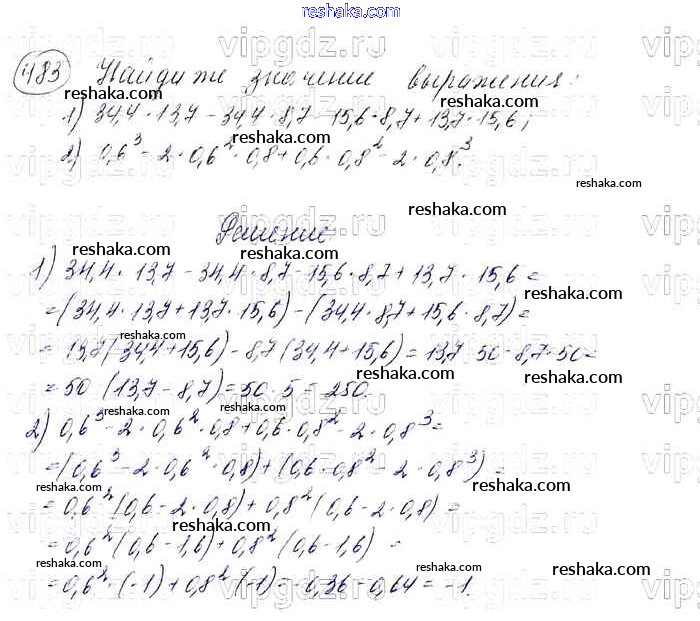 reshaka.com
483 Найдите значение выражения:
1) 34,4 · 13,7 - 34,4 · 8,7 - 15,6 · 8,7 + 13,7 · 15,6;
2) 0,6³ - 2 · 0,6² · 0,8 + 0,6 · 0,8² - 2 · 0,8³.
Решение
1) 34,4 · 13,7 - 34,4 · 8,7 - 15,6 · 8,7 + 13,7 · 15,6 =
= (34,4 · 13,7 + 13,7 · 15,6) - (34,4 · 8,7 + 15,6 · 8,7) =
= 13,7 (34,4 + 15,6) - 8,7 (34,4 + 15,6) = 13,7 · 50 - 8,7 · 50 =
= 50 (13,7 - 8,7) = 50 · 5 = 250.
2) 0,6³ - 2 · 0,6² · 0,8 + 0,6 · 0,8² - 2 · 0,8³ =
= (0,6³ - 2 · 0,6² · 0,8) + (0,6 · 0,8² - 2 · 0,8³) =
= 0,6² (0,6 - 2 · 0,8) + 0,8² (0,6 - 2 · 0,8) =
= 0,6² (0,6 - 1,6) + 0,8² (0,6 - 1,6) =
= 0,6² · (-1) + 0,8² (-1) = -0,36 - 0,64 = -1.